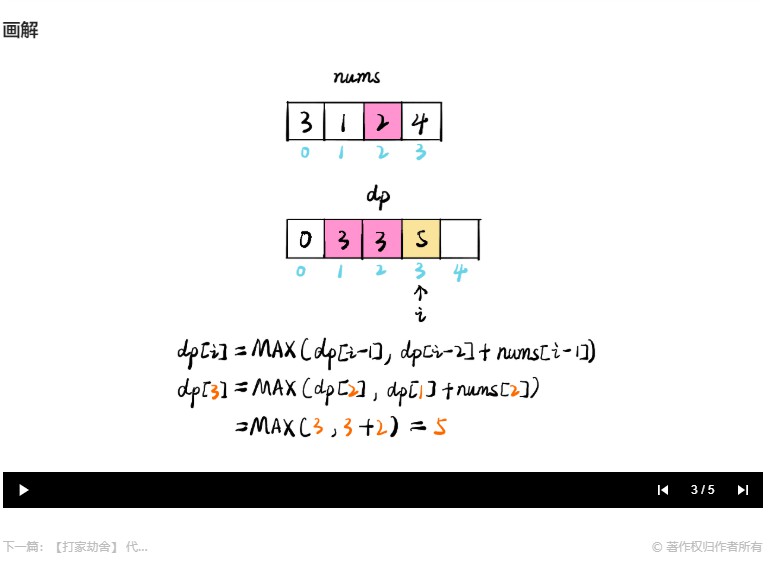 画解
nums
3 1 2 4
0 1 2 3
dp
0 3 3 5
0 1 2 3 4
↑
i
dp[i] = MAX(dp[i-1], dp[i-2] + nums[i-1])
dp[3] = MAX(dp[2], dp[1] + nums[2])
= MAX(3, 3+2) = 5
3 / 5
下一篇：【打家劫舍】 代... © 著作权归作者所有